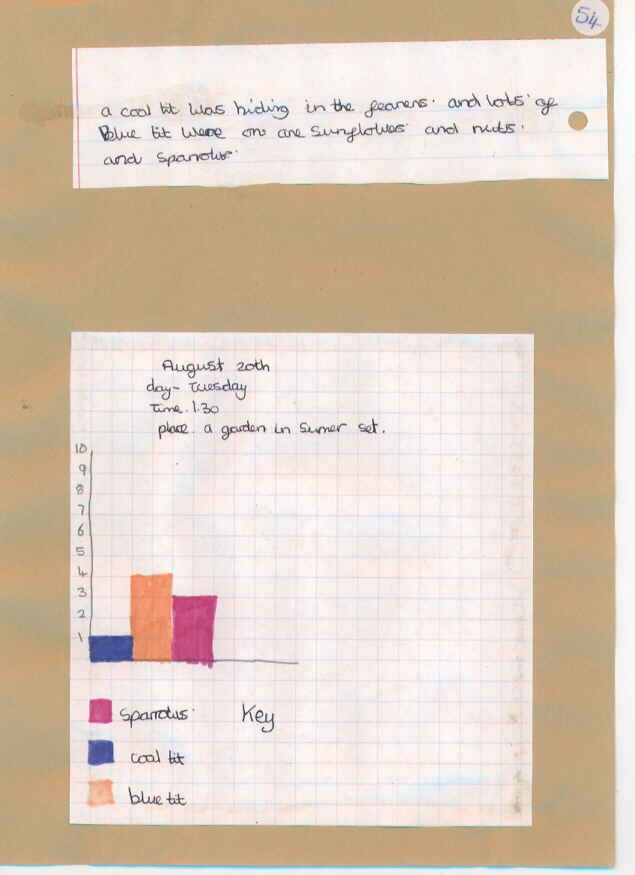 54
a coal tit was hiding in the feavers. and lots of
Blue tit were on are sunflowes and nuts.
and sparrows.
August 20th
day- Tuesday
Time. 1.30
place. a garden in Sumer set.
10
9
8
7
6
5
4
3
2
1
sparrows. Key
coal tit
blue tit